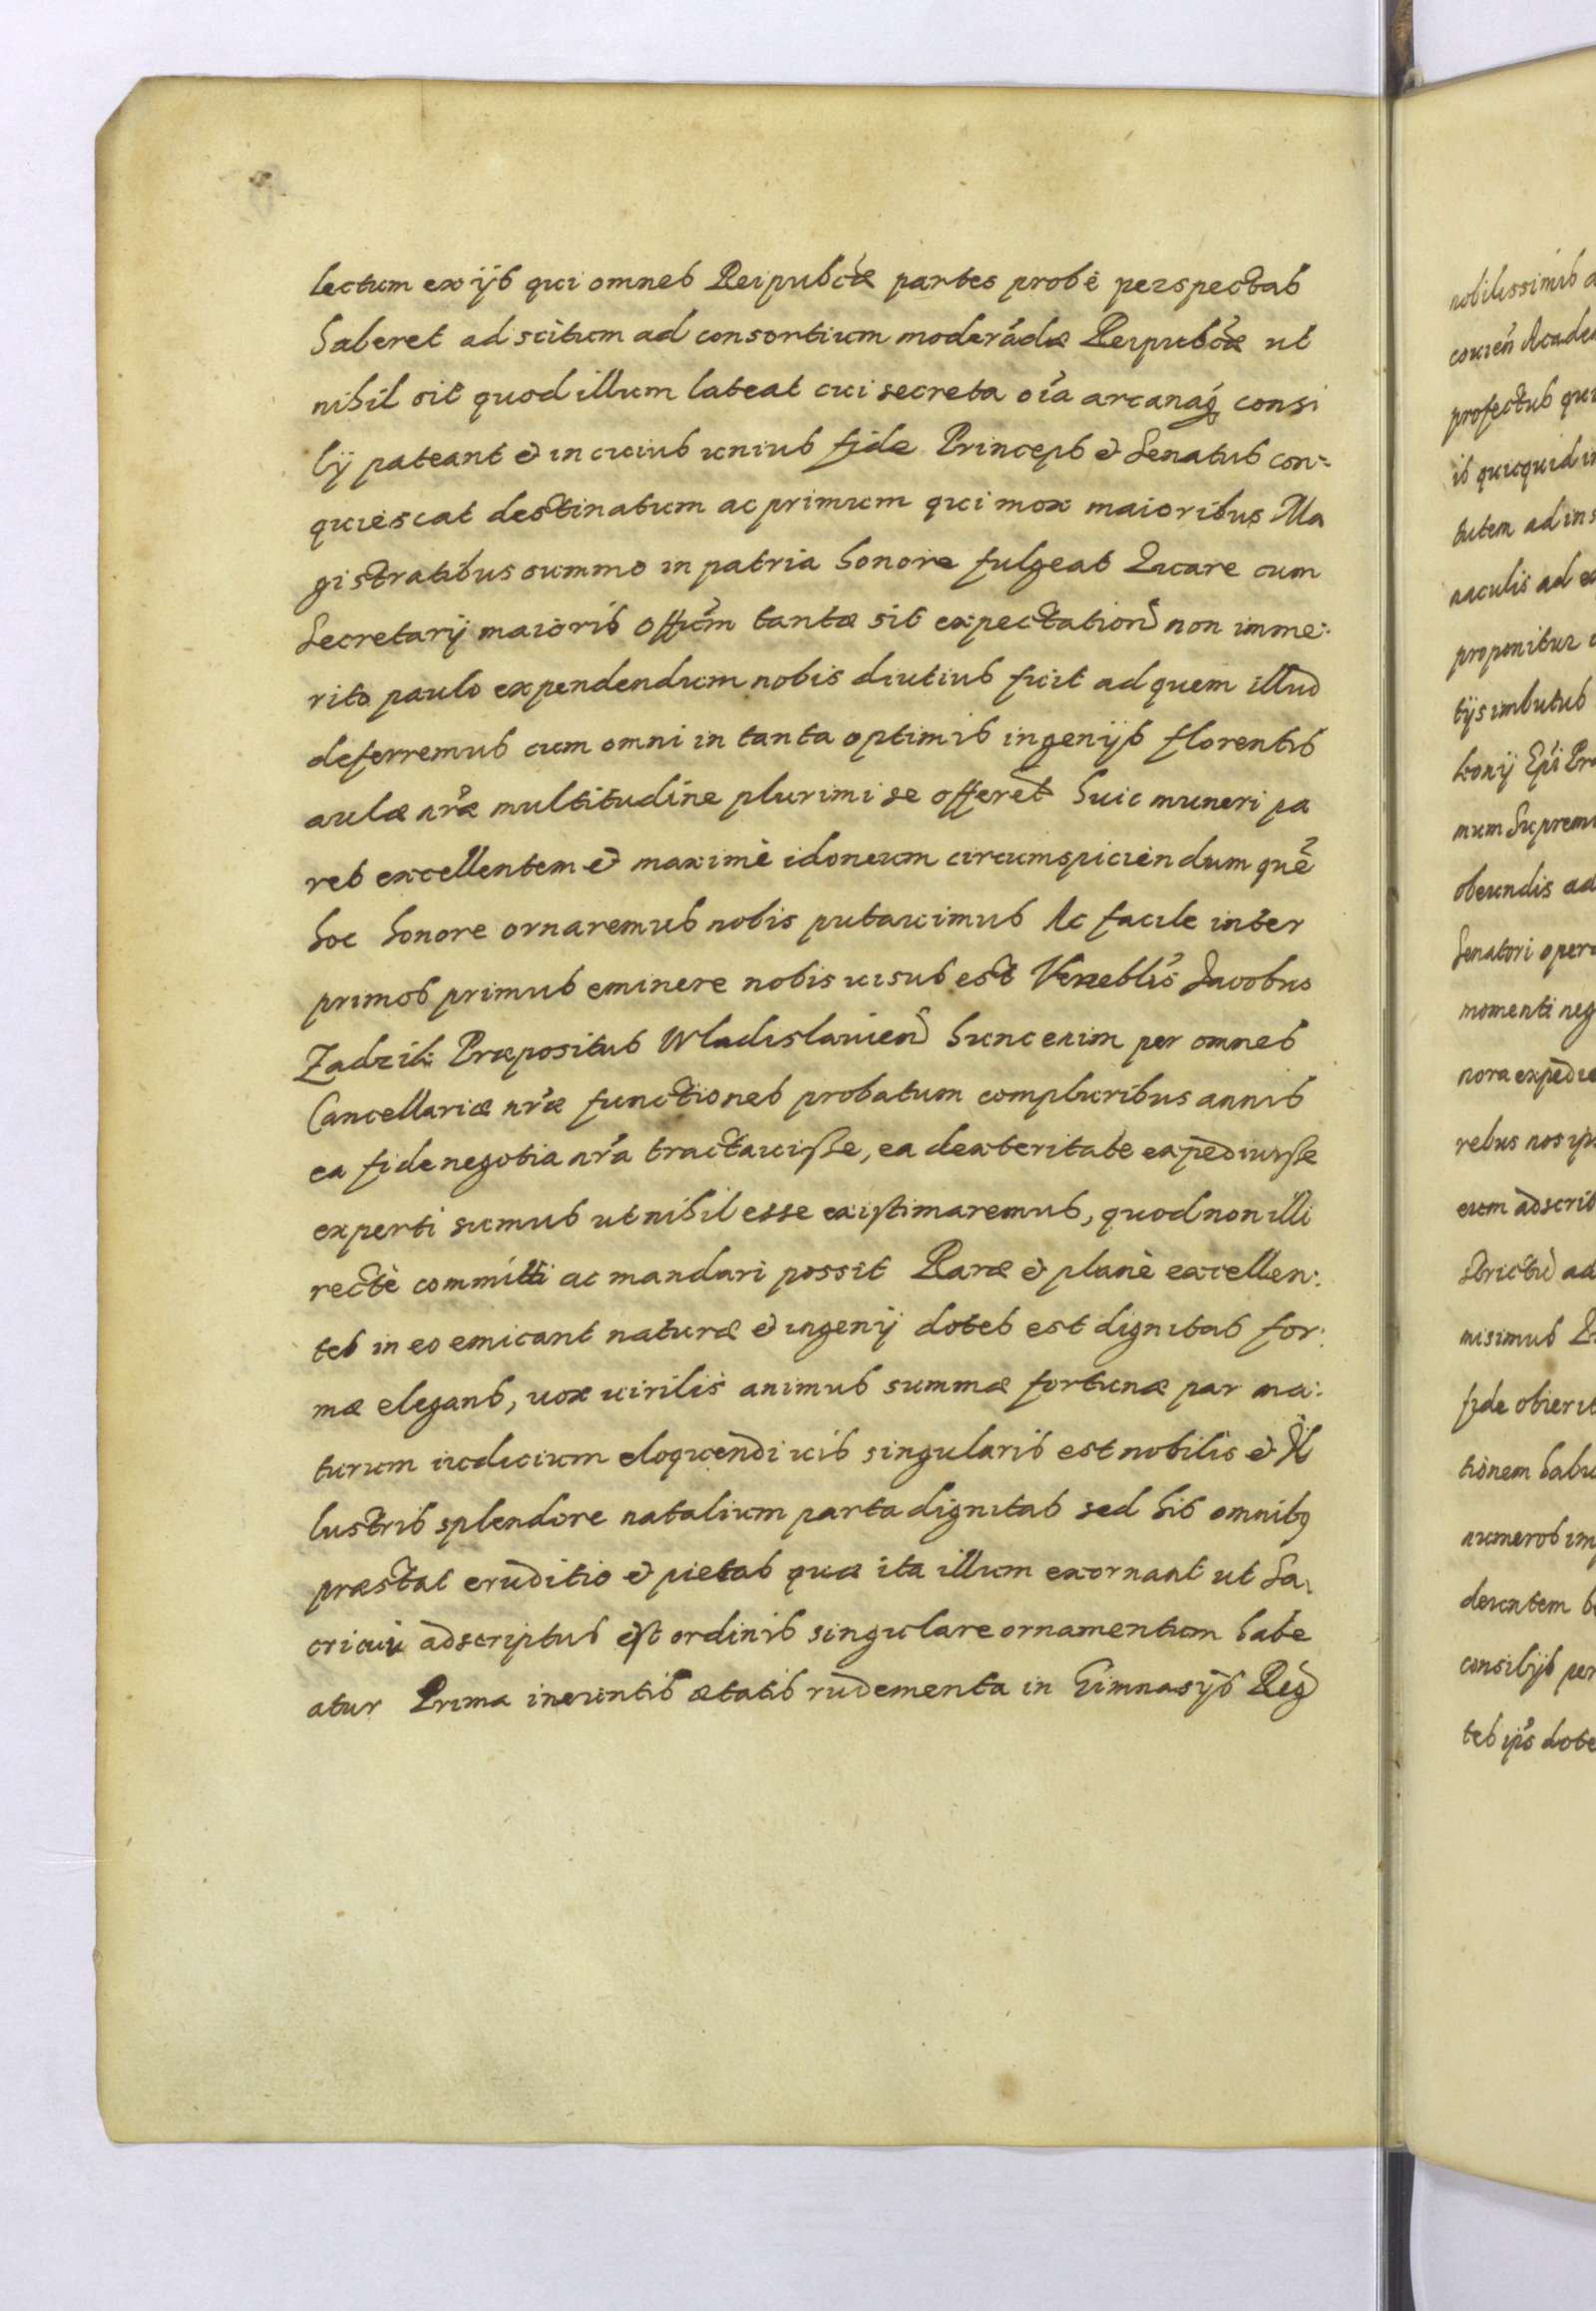 lectum ex ijs qui omnes Reipubcæ partes probè perspectas
haberet ad scitum ad consortium moderádæ Reipubcæ ut
nihil sit quod illum lateat cui secreta oĩa arcanaq consi
lÿ pateant et in cuius unius fide Princeps et Senatus con=
quiescat destinatum ac primum qui mox maioribus Ma
gistratibus summo in patria honore fulgeat Quare cum
Secretarÿ maioris offum tantæ sit expectation non imme:
rito paulo expendendum nobis diutius fuit ad quem illud
deferremus cum omni in tanta optimis ingenÿs florentis
aulæ nræ multitudine plurimi se offeret huic muneri pa
res excellentem et maximè idoneum circumspiciendum quẽ
hoc honore ornaremus nobis putauimus Ac facile inter
primos primus eminere nobis uisus est Veneblis Jacobus
Zadzik Præpositus Wladislauien hunc enim per omnes
Cancellariæ nræ functiones probatum compluribus annis
ea fide negotia nra tractauisse, ea dexteritate expediuisse
experti sumus ut nihil esse existimaremus, quod non illi
rectè committi ac mandari possit Raræ et planè excellen:
tes in eo emicant naturæ et ingenÿ dotes est dignitas for:
mæ elegans, uox uirilis animus summæ fortunæ par ma:
turum iudicium eloquendi uis singularis est nobilis et Il
lustris splendore natalium parta dignitas sed his omnibq
præstat eruditio et pietas quæ ita illum exornant ut Sa,
cri cui adscriptus est ordinis singulare ornamentum habe
atur Prima ineuntis ætatis rudementa in Gimnasÿs Reg
nobilissimis a
couien Acade
profectus qui
is quicquid in
tutem ad ins
naculis ad
proponitur
tÿs imbutus
konÿ Epi Pr
mum Suprem
obeundis ad
Senatori oper
momenti neg
nora expedie
rebus nos ip
eum adscrib
strictu ad
misimus
fide obierit
tionem habu
numeros im
deuntem
consilÿs per
tes ips dote